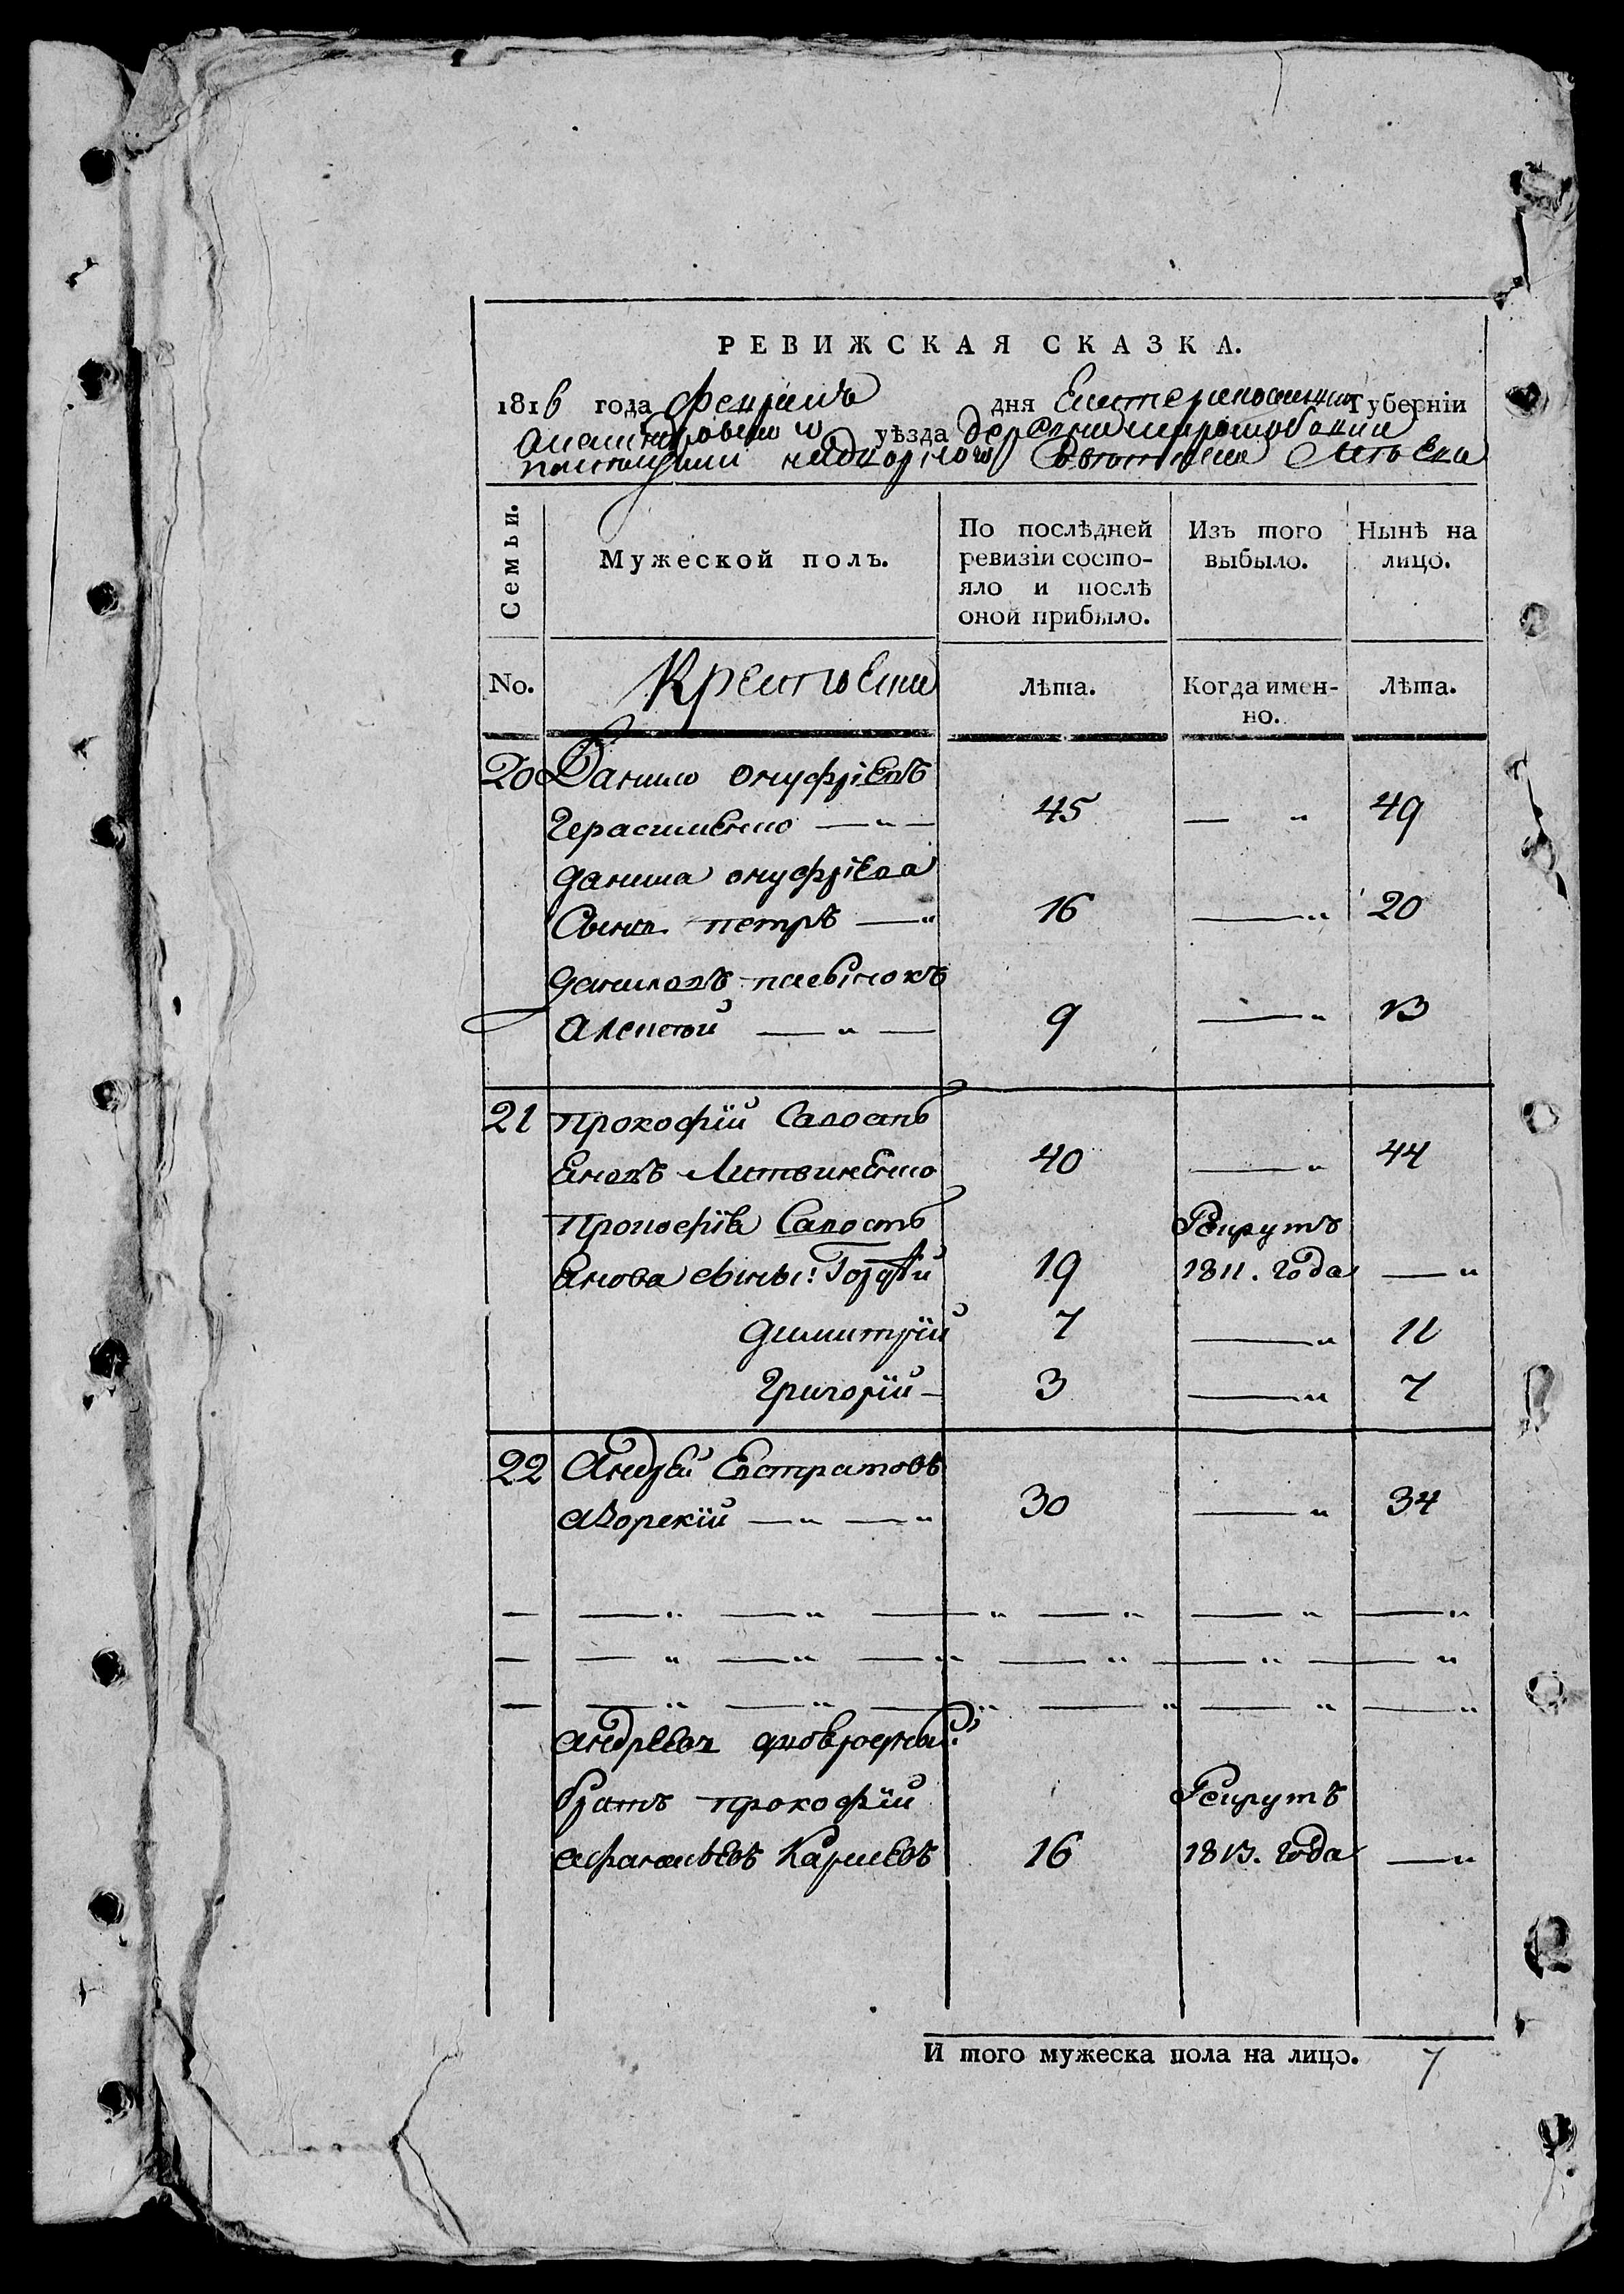 РЕВИЖСКАЯ СКАЗКА.
1816 года дня Екатеринославской Губерніи
Александровского уѣзда деревни
надворного Советника
Семьи.
Мужеской полъ.
По послѣдней ревизіи состо-
яло и послѣ
оной прибыло.
Изъ того
выбыло.
Нынѣ на
лицо.
No. Крестьяне Лѣта. Когда имен-
но. Лѣта.
20 Данило Онуфріевъ
Герасименко — „ — 45 — „ 49
Данила онуфріева
Сынъ петръ — „ 16 — „ 20
Даниловъ пасынокъ
Алексей — „ — 9 — „ 13
21 Прокофій Савост
Еновъ Литвиненко 40 — „ 44
Прокофія Савост Рекрутъ
Янова сыны: Гордѣй 19 1811. года — „
Димитрій 7 — „ 11
Григорій — 3 — „ 7
22 Андрѣй Евстратовъ
Яворскій — „ — „ 30 — „ 34
— — „ — „ — „ — „ — „ — „
— — „ — „ — „ — „ — „ — „
— — „ — „ — „ — „ — „ — „
Андрѣевъ двоюродный
братъ прокофій Рекрутъ
Афанасьевъ 16 1813. года — „
И того мужеска пола на лицо. 7